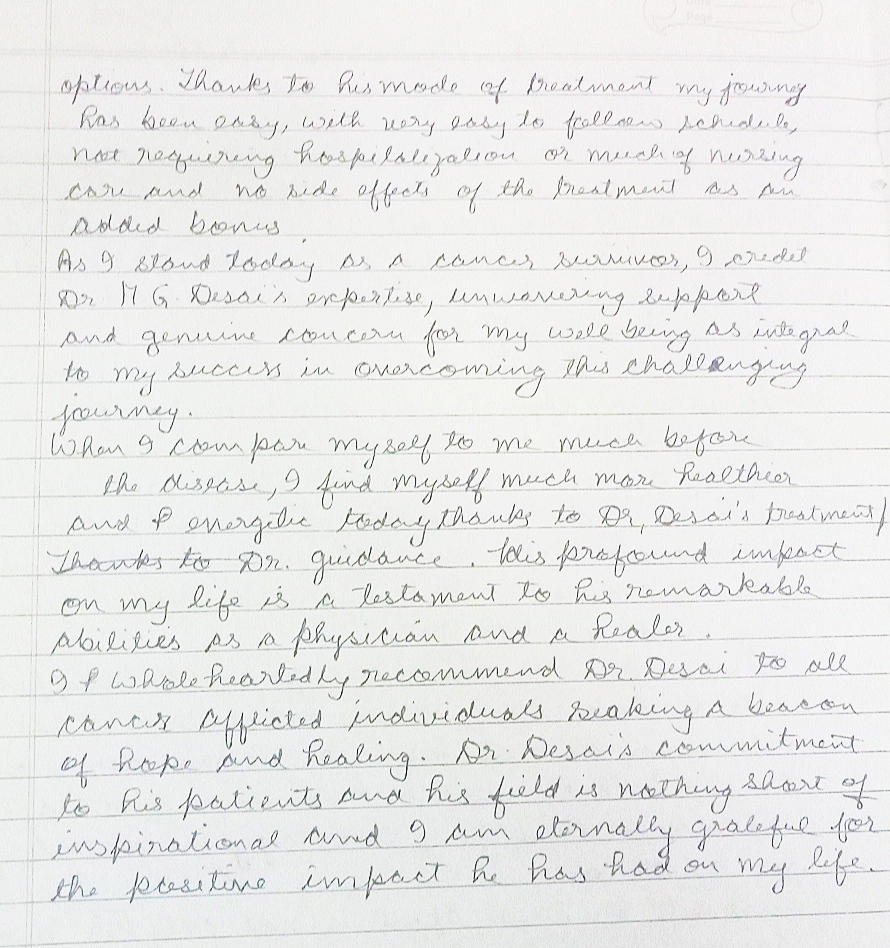 options. Thanks to his mode of treatment my journey
has been easy, with very easy to follow schedule,
not requiering hospitalization or much of nursing
care and no side effects of the treatment as an
added bonus
As I stand today as a cancer survivor, I credit
Dr M G. Desai's expertise, unwavering support
and genuine concern for my well being as integral
to my success in overcoming this challenging
journey.
When I compare myself to me much before
the disease, I find myself much more healthier
and & energetic today thanks to Dr, Desai's treatment/
Thanks to Dr. guidance. His profound impact
on my life is a testament to his remarkable
abilities as a physician and a healer.
I & whole heartedly recommend Dr. Desai to all
cancer afflicted individuals seaking a beacon
of hope and healing. Dr. Desai's commitment
to his patients and his field is nothing short of
inspirational and I am eternally grateful for
the positive impact he has had on my life.